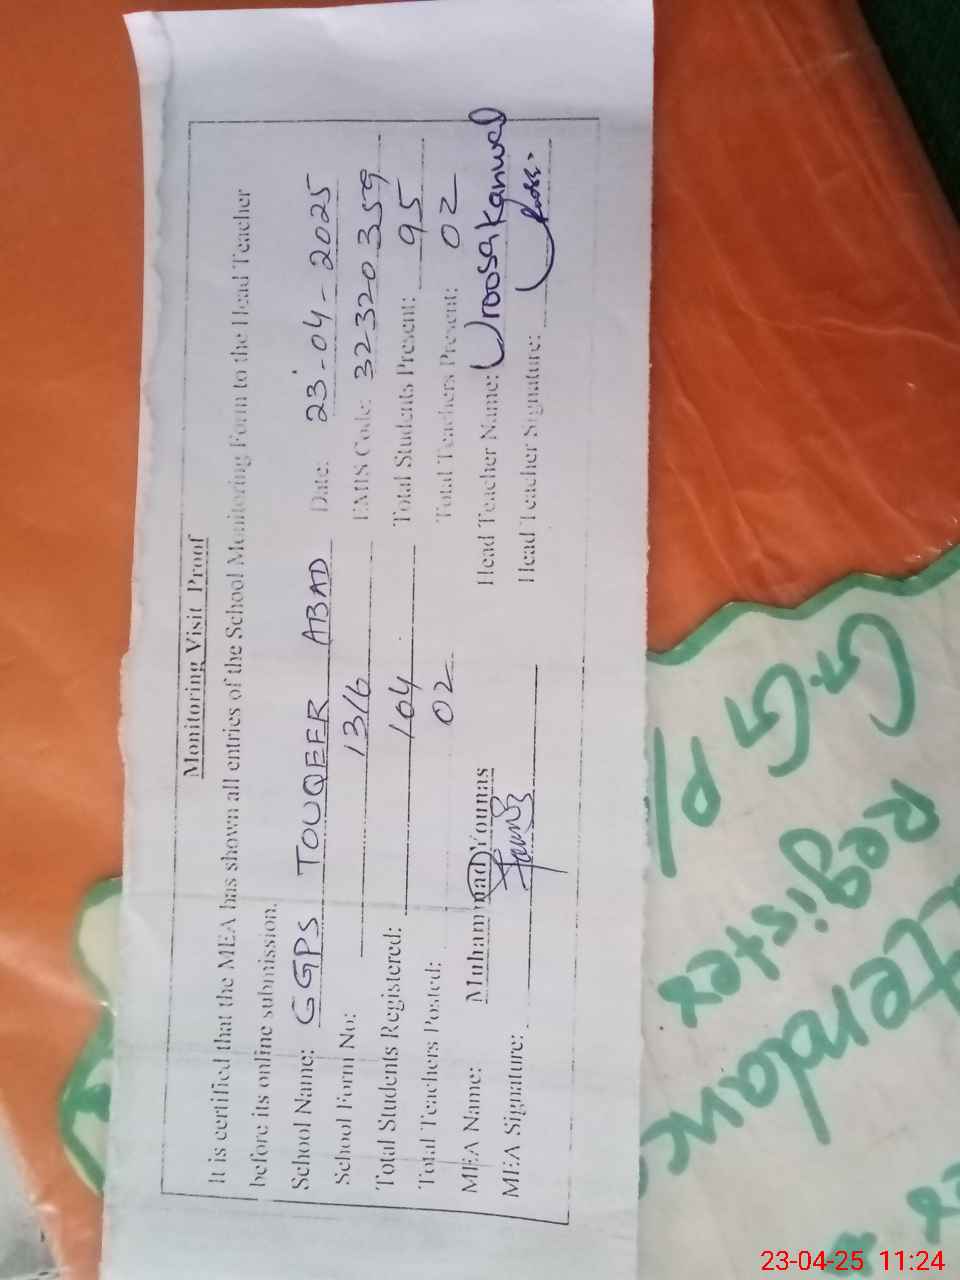 Monitoring Visit Proof
It is certified that the MEA has shown all entries of the School Monitoring Form to the Head Teacher
before its online submission.
School Name: GGPS TOUQEER ABAD Date: 23-04-2025
School Form No: 1316 EMIS Code: 32320359
Total Students Registered: 104 Total Students Present: 95
Total Teachers Posted: 02 Total Teachers Present: 02
MEA Name: Muhammad Younas Head Teacher Name: Uroosa Kanwal
MEA Signature: Head Teacher Signature:
G.G P/
Register
23-04-25 11:24